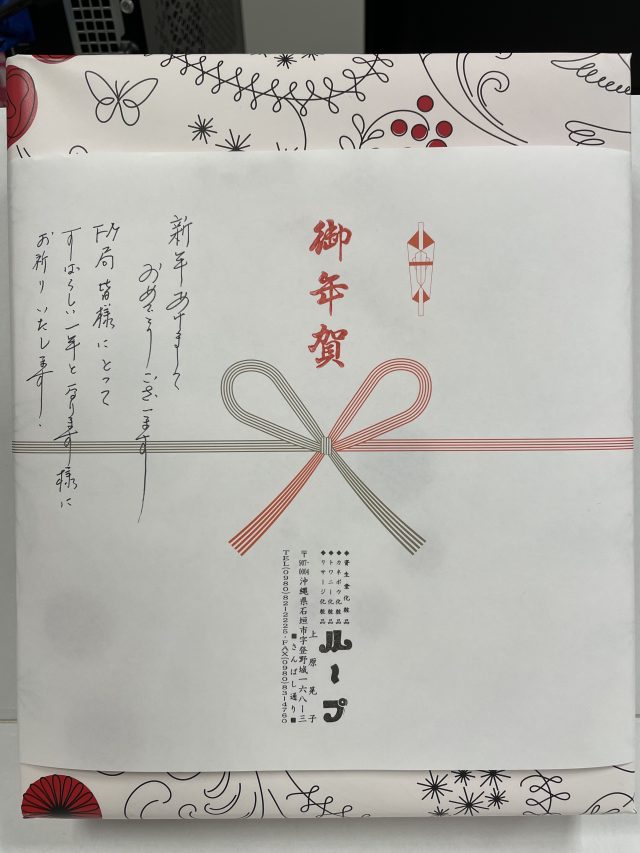 御年賀
◆資生堂化粧品
◆カネボウ化粧品
◆トワニー化粧品
◆リサージ化粧品
ループ
上原晃子
〒907-0004 沖縄県石垣市字登野城一六八ー三
■さんばし通り■
TEL(0980)82-2225・FAX(0980)83-4760
新年あけまして
おめでとうございます
局皆様にとって
すばらしい一年となります様に
お祈りいたします.